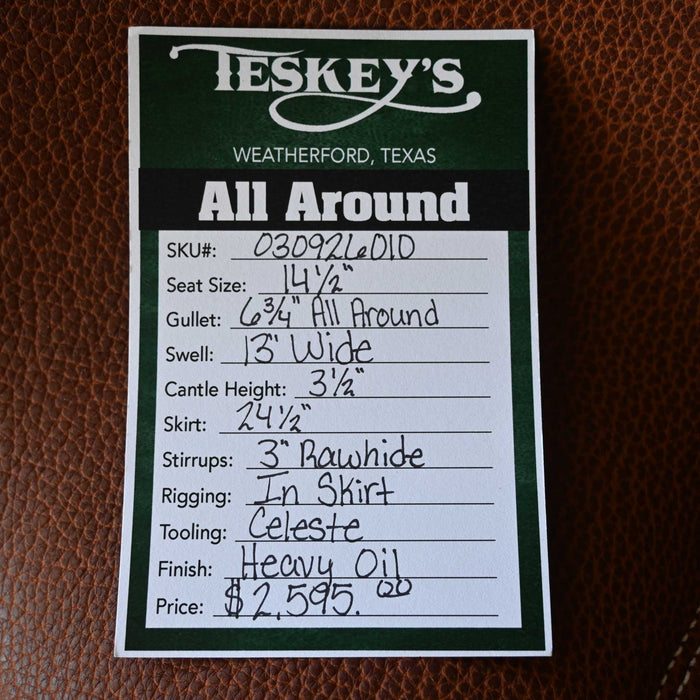 TESKEY'S
WEATHERFORD, TEXAS
All Around
SKU#: 030926010
Seat Size: 14 1/2"
Gullet: 6 3/4" All Around
Swell: 13" Wide
Cantle Height: 3 1/2"
Skirt: 24 1/2"
Stirrups: 3" Rawhide
Rigging: In Skirt
Tooling: Celeste
Finish: Heavy Oil
Price: $2,595.00